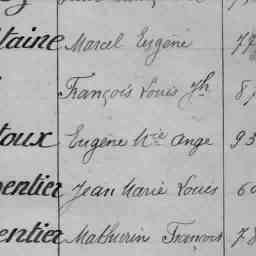 taine Marcel Eugène 77
François Louis Jh 87
toux Eugène Mie Ange 93
pentier Jean Marie Louis 60
entier Mathurin François 78